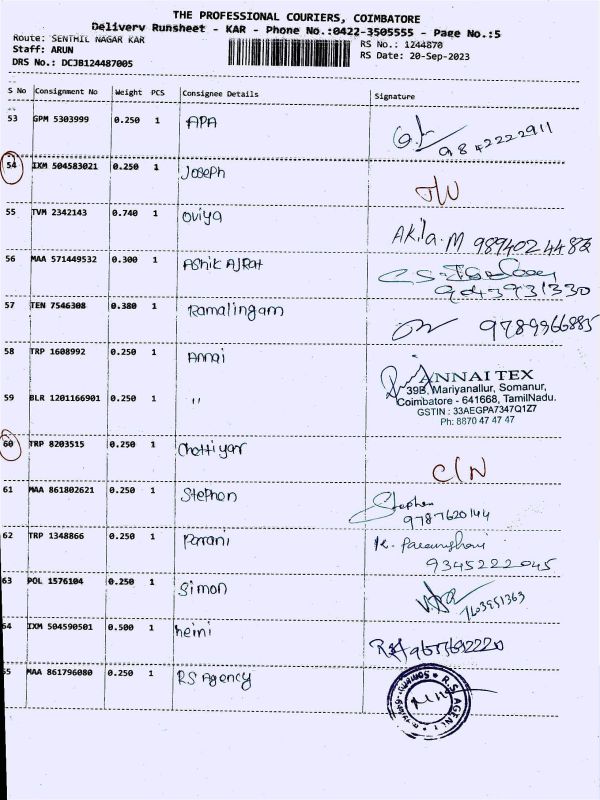 THE PROFESSIONAL COURIERS, COIMBATORE
Delivery Runsheet - KAR - Phone No.:0422-3505555 - Page No.:5
Route: SENTHIL NAGAR KAR
RS No.: 1244870
Staff: ARUN
RS Date: 20-Sep-2023
DRS No.: DCJB124487005
S No Consignment No Weight PCS Consignee Details Signature
53 GPM 5303999 0.250 1 APA 9842222911
54 IXM 504583021 0.250 1 Joseph
55 TVM 2342143 0.740 1 Oviya Akila.M 9894024482
56 MAA 571449532 0.300 1 Ashik AJRat 9043931330
57 TEN 7546308 0.380 1 Ramalingam 9789966885
58 TRP 1608992 0.250 1 Annai
ANNAI TEX
39B, Mariyanallur, Somanur,
59 BLR 1201166901 0.250 1 "
Coimbatore - 641668, TamilNadu.
GSTIN : 33AEGPA7347Q1Z7
Ph: 8870 47 47 47
60 TRP 8203515 0.250 1 Chettiyar C/N
61 MAA 861802621 0.250 1 Stephen Stephen
9787620144
62 TRP 1348866 0.250 1 Parani K.
9345222045
63 POL 1576104 0.250 1 Simon 7603951363
64 IXM 504590501 0.500 1 heini
65 MAA 861796080 0.250 1 RS Agency
R.S. AGENCY